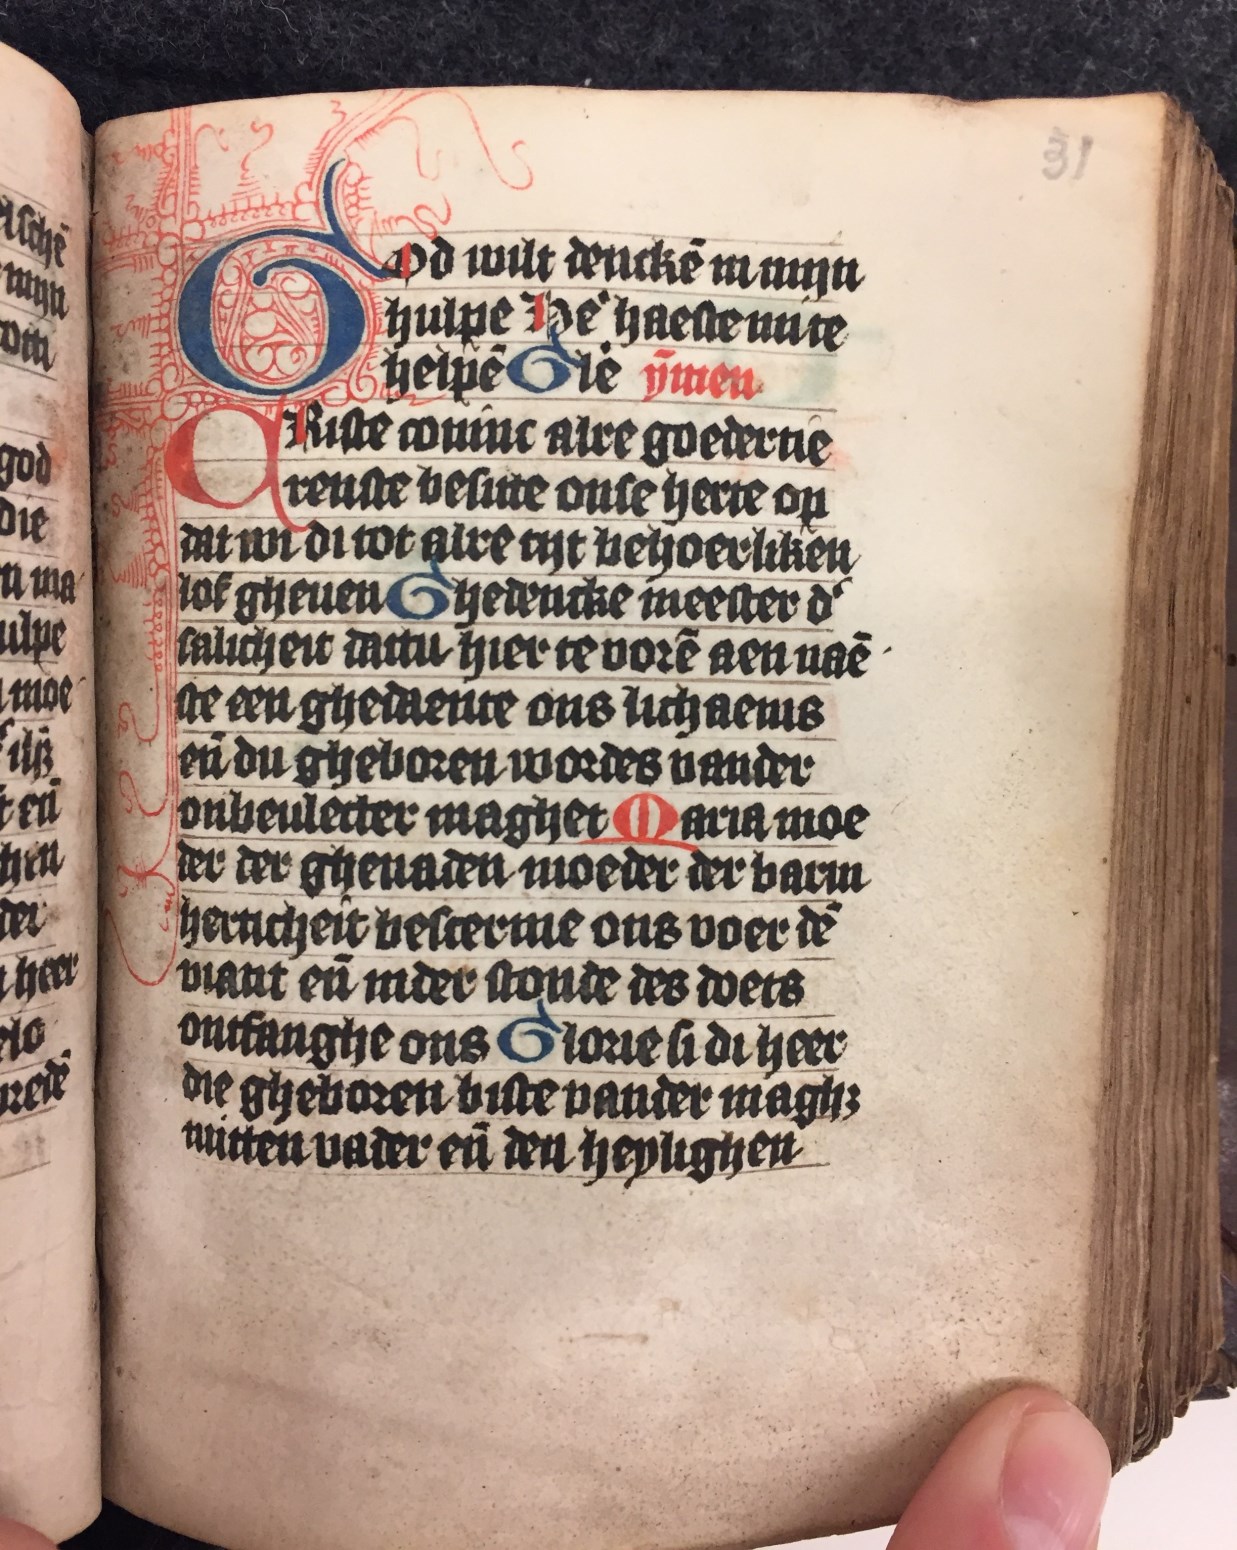 eische̅
mijn
god
die
n ma
ulpe
moe
t en̅
der
heer
31
God wilt dencke̅ in mijn
hulpe He' haeste mi te
helpe̅ Glė y̅men
CRiste coninc alre goedertie
renste besitte onse herte op
dat wi di tot alre tijt behoerliken
lof gheuen Ghedencke meester d'
salicheit dattu hier te vore̅ aen nae̅
ste een ghedaente ons lichaems
en̅ du gheboren wordes vander
onbeulecter maghet Maria moe
der der ghenaden moeder der barm
herticheit bescerme ons voer de̅
viant en̅ inder stonde des doets
ontfanghe ons Glorie si di heer
die gheboren biste vander maghꝫ
mitten vader en̅ den heylighen